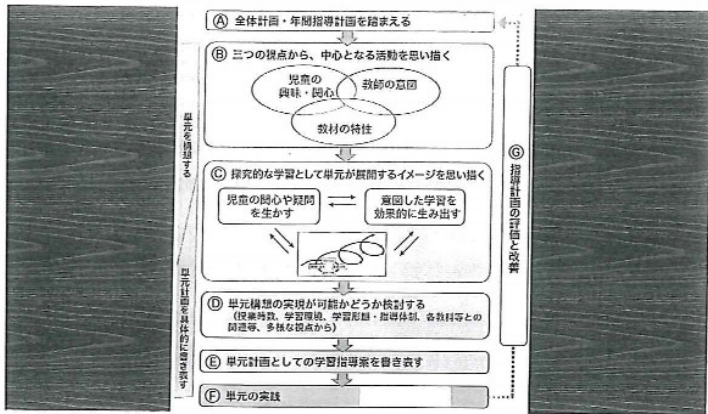 Ⓐ 全体計画・年間指導計画を踏まえる
Ⓑ 三つの視点から、中心となる活動を思い描く
児童の
興味・関心
教師の意図
教材の特性
単元を構想する
Ⓒ 探究的な学習として単元が展開するイメージを思い描く
児童の関心や疑問
を生かす
意図した学習を
効果的に生み出す
単元計画を具体的に書き表す
Ⓓ 単元構想の実現が可能かどうか検討する
(授業時数、学習環境、学習形態・指導体制、各教科等との
関連等、多様な視点から)
Ⓔ 単元計画としての学習指導案を書き表す
Ⓕ 単元の実践
Ⓖ 指導計画の評価と改善